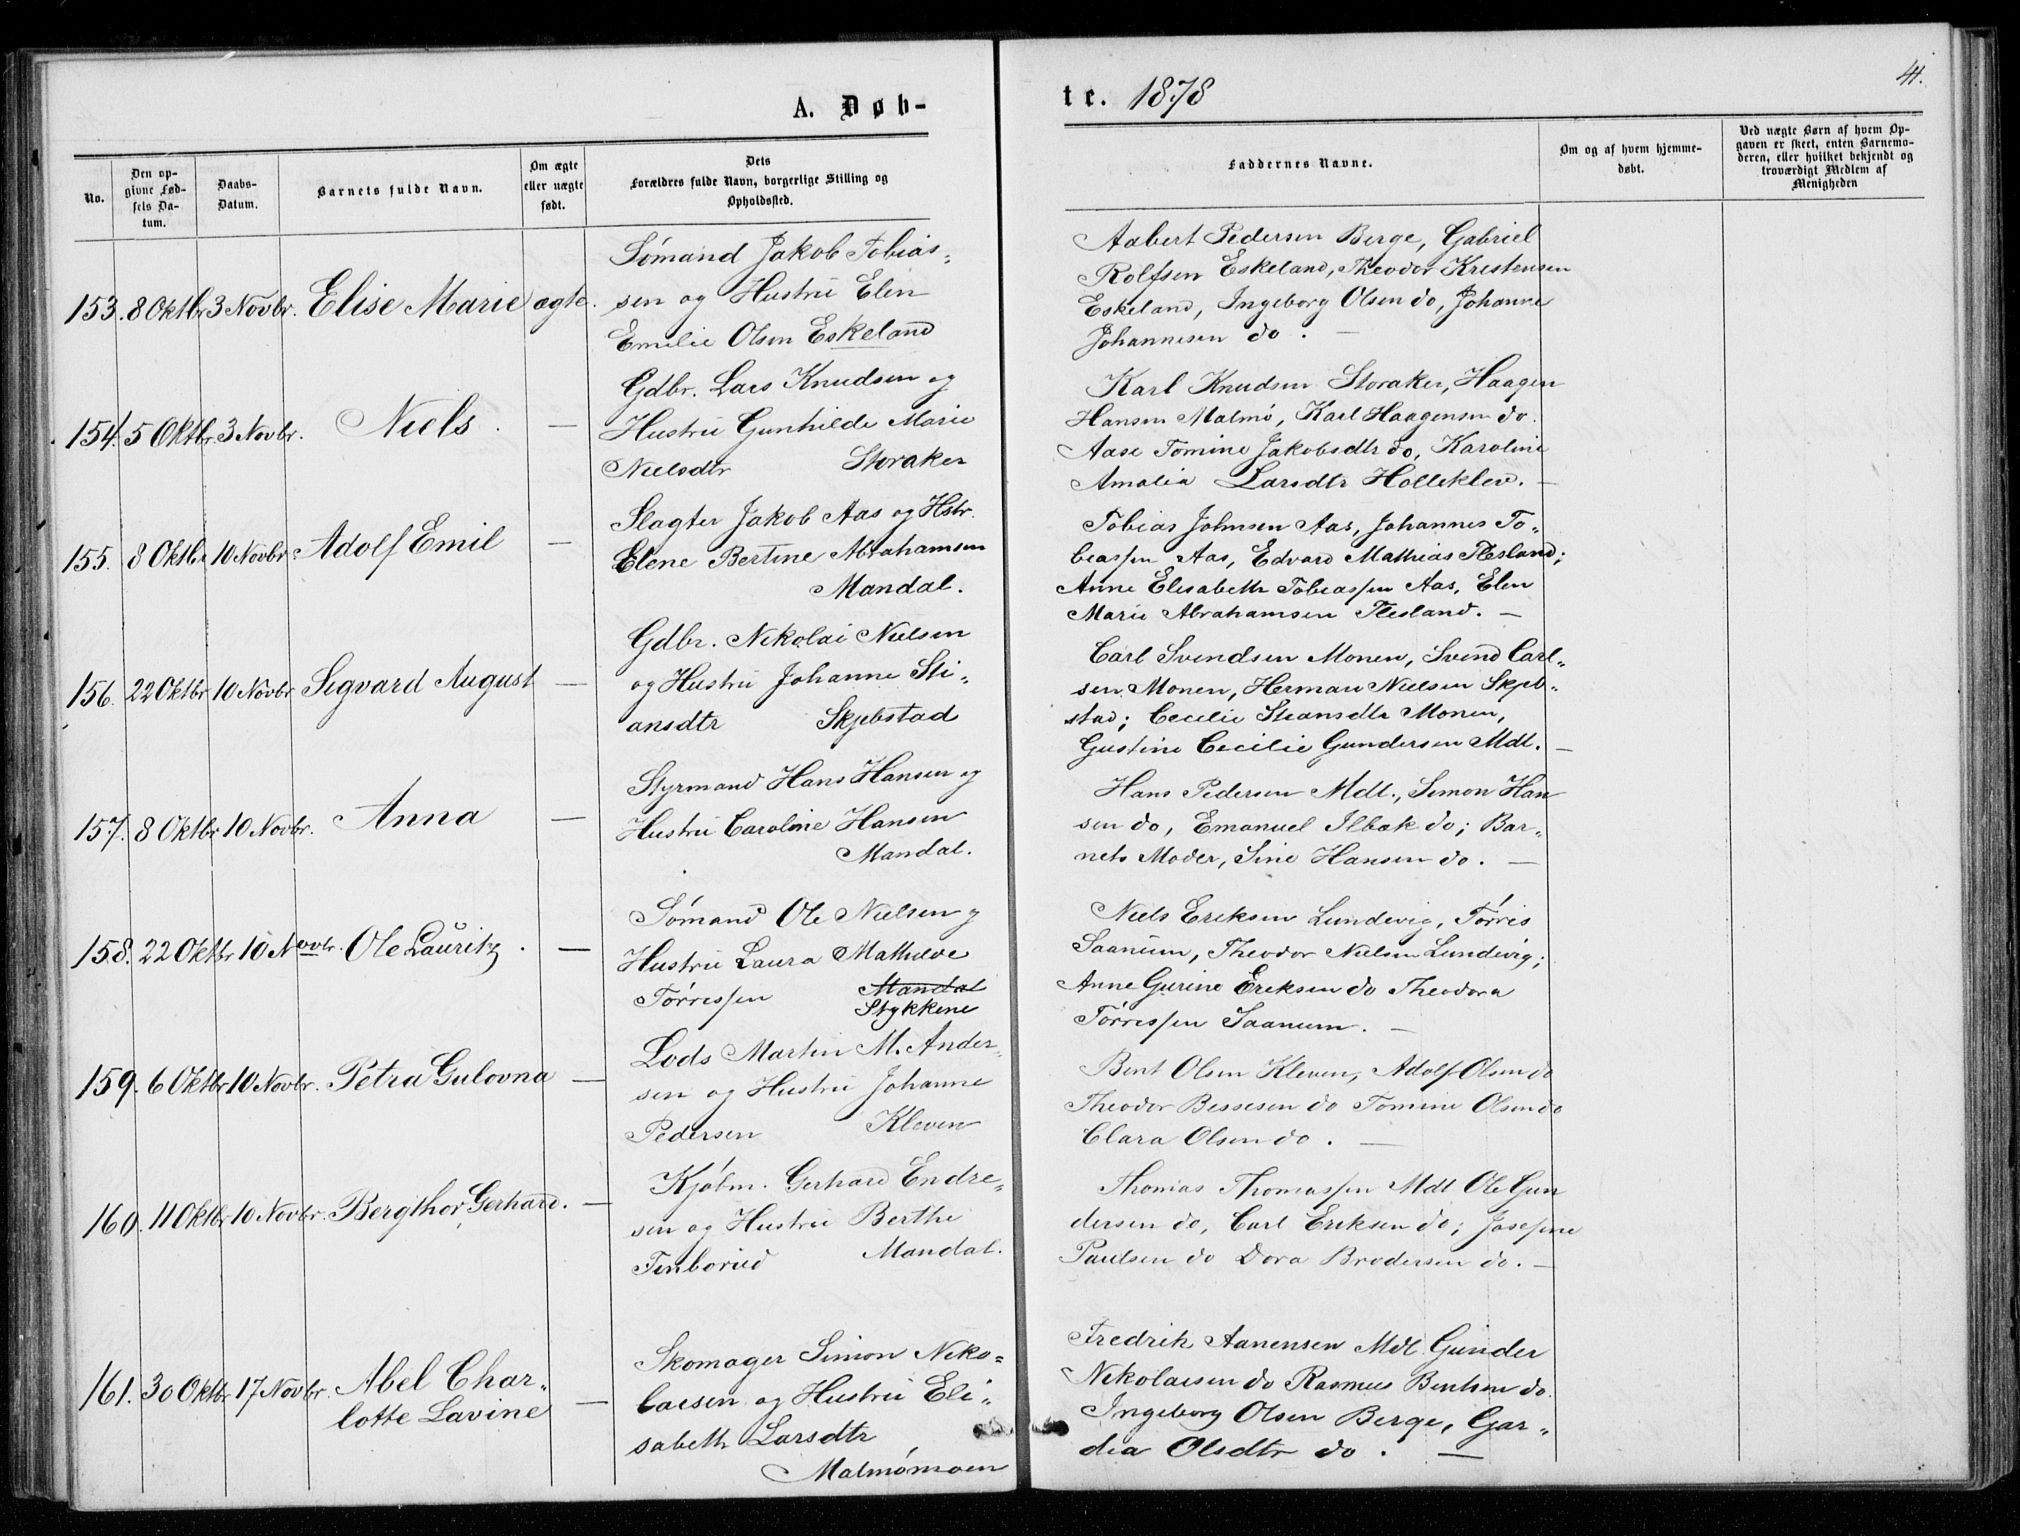 A. Døb-
te. 1878
41.
No.
Den op-
givne Fød-
sels Da-
tum.
Daabs-
Datum.
Barnets fulde Navn.
Om ægte
eller uægte
født.
Dets
Forældres fulde Navn, borgerlige Stilling og
Opholdssted.
Faddernes Navne.
Om og af hvem hjemme-
døbt.
Ved uægte Børn af hvem Op-
gaven er skeet, enten Barnemo-
deren, eller hvilket bekjendt og
troværdigt Medlem af
Menigheden
153. 8 Oktbr 3 Novbr. Elise Marie ægte.
Sømand Jakob Tobias-
sen og Hustru Elen
Emilie Olsen Eskeland
Aabert Pedersen Berge, Gabriel
Rolfsen Eskeland, Theodor Kristensen
Eskeland, Ingeborg Olsen do, Johanne
Johannesen do. —
154. 5 Oktbr. 3 Novbr. Niels. —
Gdbr. Lars Knudsen og
Hustru Gunhilde Marie
Nielsdtr Storaker
Karl Knudsen Storaker, Haagen
Hansen Malmø, Karl Haagensen do.
Aase Tomine Jakobsdtr do, Karoline
Amalia Larsdtr Holleklev. —
155. 8 Oktbr 10 Novbr. Adolf Emil —
Slagter Jakob Aas og Hstr.
Elene Bertine Abrahamsen
Mandal.
Tobias Johnsen Aas, Johannes To-
biassen Aas, Edvard Mathias Flesland;
Anne Elisabeth Tobiassen Aas, Elen
Marie Abrahamsen Flesland. —
156. 22 Oktbr 10 Novbr Sigvard August —
Gdbr. Nikolai Nielsen
og Hustru Johanne Sti-
ansdtr Skjebstad
Carl Svendsen Monen, Svend Carl-
sen Monen, Herman Nielsen Skjeb-
stad; Cecilie Stiansdtr Monen,
Gustine Cecilie Gundersen Mdl. —
157. 8 Oktbr 10 Novbr. Anna —
Styrmand Hans Hansen og
Hustru Caroline Hansen
Mandal.
Hans Pedersen Mdl., Simon Han
sen do, Emanuel Ilbæk do; Bar-
nets Moder, Sine Hansen do. —
158. 22 Oktbr 10 Novbr. Ole Lauritz. —
Sømand Ole Nielsen og
Hustru Laura Mathilde
Tørressen Mandal
Stykkene
Niels Eriksen Lundevig, Tørris
Saanum, Theodor Nielsen Lundevig;
Anne Gurine Eriksen do Theodora
Tørressen Saanum. —
159. 6 Oktbr 10 Novbr. Petra Gulovna —
Lods Martin M. Ander-
sen og Hustru Johanne
Pedersen Kleven
Bent Olsen Kleven, Adolf Olsen do
Theodor Bessesen do Tomine Olsen do
Clara Olsen do. —
160. 11 Oktbr 10 Novbr. Bergithor Gerhard. —
Kjøbm. Gerhard Endre-
sen og Hustru Berthe
Finborud Mandal.
Thomas Thomassen Mdl Ole Gun
dersen do, Carl Eriksen do; Josefine
Paulsen do Dora Brodersen do. —
161. 30 Oktbr 17 Novbr. Abel Char-
lotte Lavine —
Skomager Simon Niko-
laisen og Hustru Eli-
sabeth Larsdtr
Malmømoen
Fredrik Aanensen Mdl Gunder
Nikolaisen do Rasmus Bentsen do.
Ingeborg Olsen Berge, Gar-
dia Olsdtr do. —